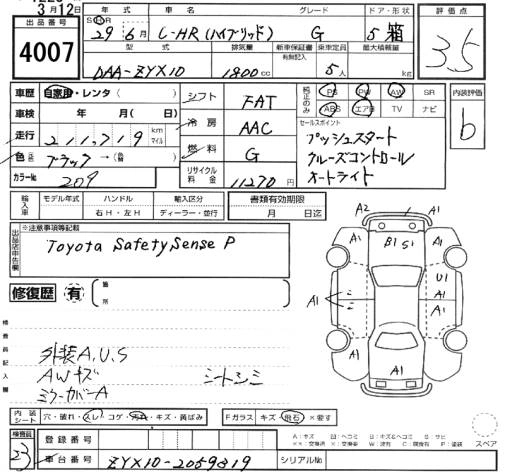 3月12日
出品番号
4007
年式 車名 グレード ドア・形状
SHR
29年 6月 C-HR(ハイブリッド) G 5 箱
評価点
3.5
型式 排気量 新車保証書 乗車定員 最大積載量
有無記入
DAA-ZYX10 1800cc 5人 kg
車歴 自家用・レンタ( )
シフト FAT
純正のみ
PS PW AW SR
ABS エアB TV ナビ
内装評価
b
車検 年 月( 日)
冷房 AAC
セールスポイント
プッシュスタート
クルーズコントロール
オートライト
走行 211,719 km マイル
色 ブラック→
燃料 G
カラーNo. 209
リサイクル料金 11270円
輸入車 モデル年式 ハンドル 輸入区分 書類有効期限
右H・左H ディーラー・並行 月 日迄
出品店申告欄
※注意事項等記載
Toyota SafetySense P
修復歴 有 箇所
A2 A1
A1 B1 S1 A1
U1
A1 A1 A1
A1 A1
A1
検査員記入欄
外装A,U,S
AWキズ
ミラーカバーA
シートシミ
内装シート 穴・破れ・スレ・コゲ・汚れ・キズ・黄ばみ
Fガラス キズ・飛石・×要す
検査員
33
登録番号
車台番号 ZYX10-2059819 シリアルNo.
スペア